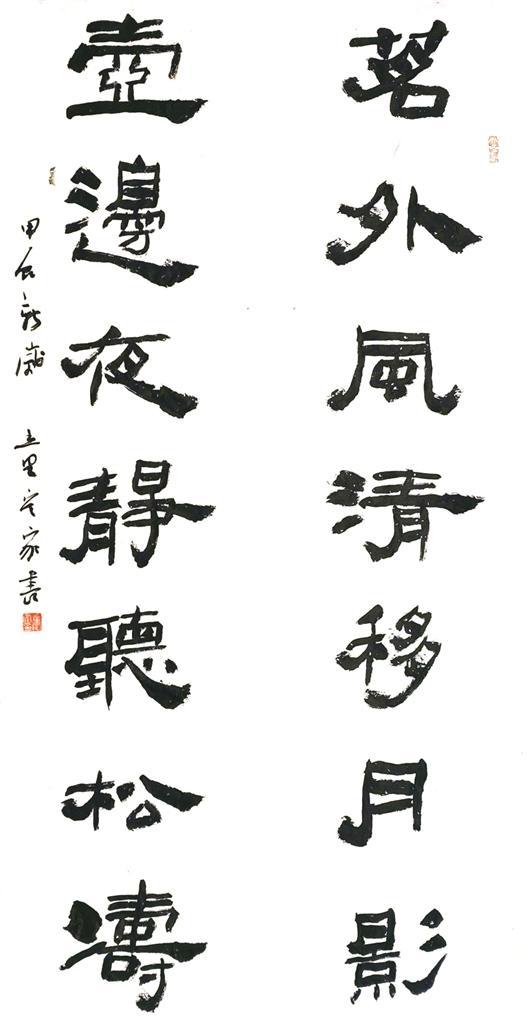 茗外風清移月影
壺邊夜靜聽松濤
甲辰新歲 五里岦家書